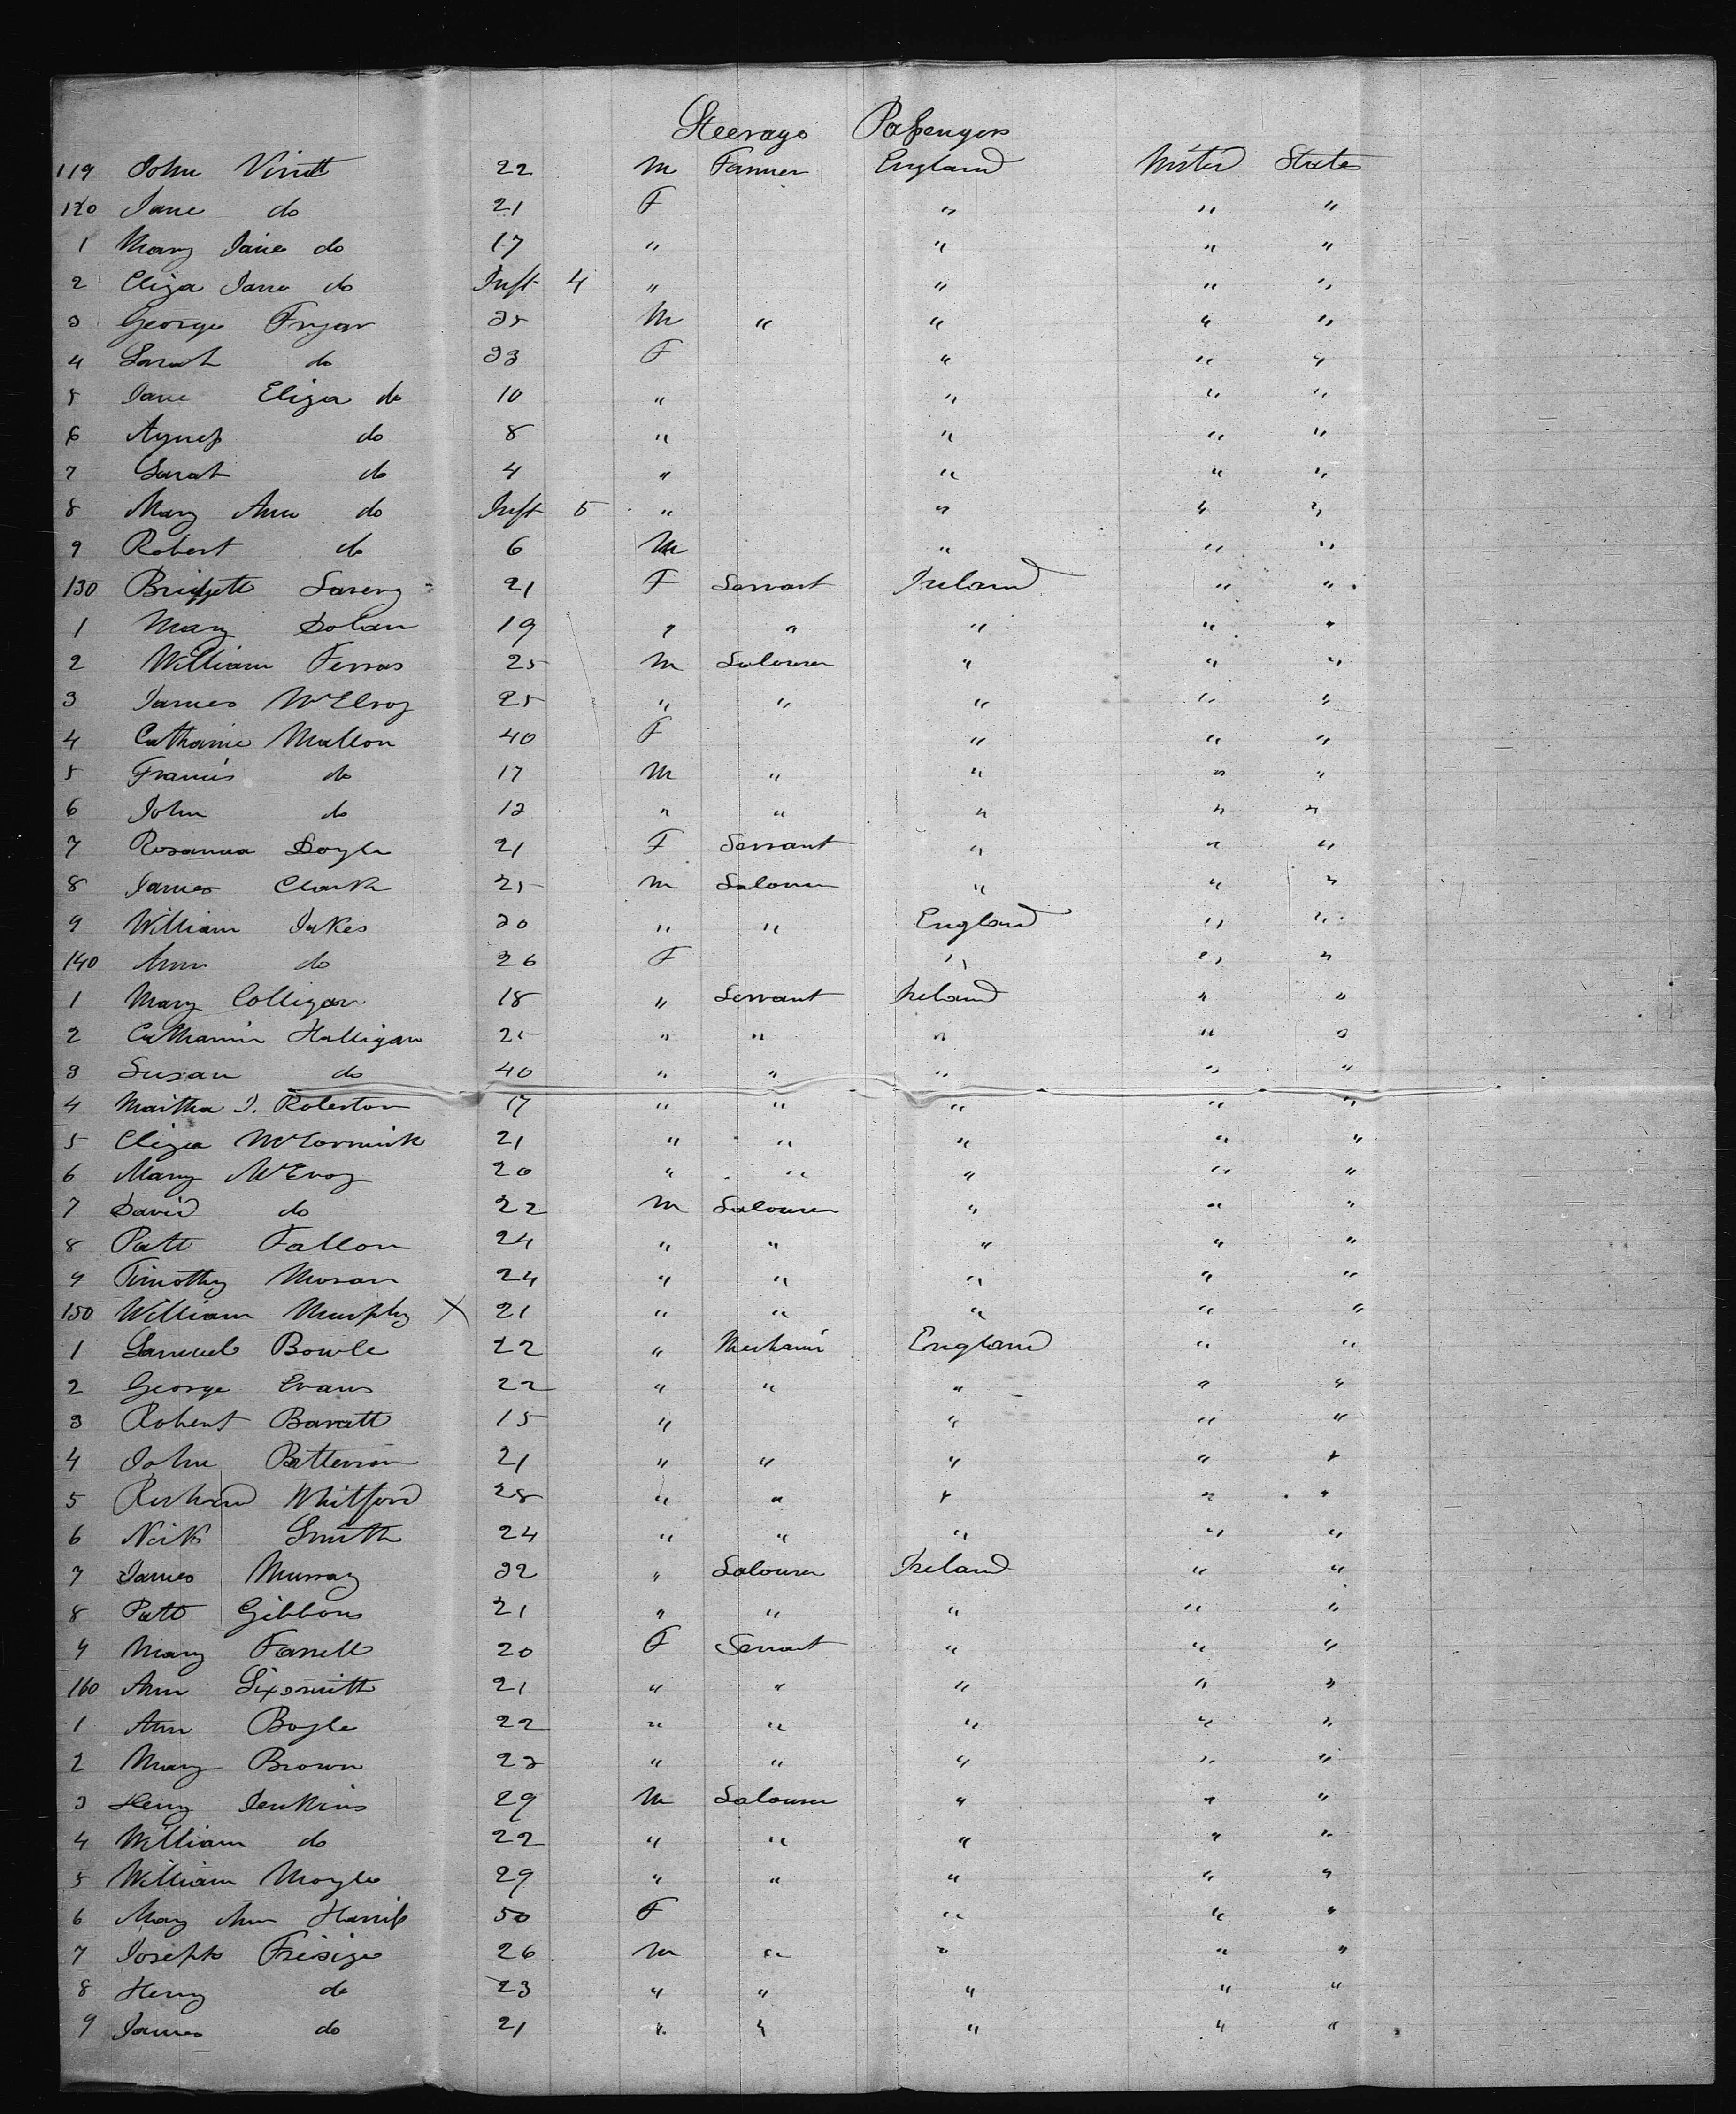 Steerage Passengers
119 John Vinitt 22 M Farmer England United States
120 Jane do 21 F " " "
1 Mary Jane do 17 " " " "
2 Eliza Jane do Inft 4 " " " "
3 George Fryar 35 M " " " "
4 Sarah do 33 F " " "
5 Jane Eliza do 10 " " " "
6 Agness do 8 " " " "
7 Sarah do 4 " " " "
8 Mary Ann do Inft 5 " " " "
9 Robert do 6 M " " "
130 Bridgett 21 F Servant Ireland " "
1 Mary Dolan 19 " " " " "
2 William Ferras 25 M Labourer " " "
3 James McElroy 25 " " " " "
4 Catharine Mallon 40 F " " "
5 Francis do 17 M " " " "
6 John do 12 " " " " "
7 Rosanna Doyle 21 F Servant " " "
8 James Clark 25 M Labourer " " "
9 William Jakes 30 " " England " "
140 Ann do 26 F " " "
1 Mary Colligan 18 " Servant Ireland " "
2 Catharin Halligan 25 " " " " "
3 Susan do 40 " " " " "
4 Martha J. Roberton 17 " " " " "
5 Eliza McCormick 21 " " " " "
6 Mary McEvoy 20 " " " " "
7 David do 22 M Labourer " " "
8 Patt Fallon 24 " " " " "
9 Timothy Moran 24 " " " " "
150 William Murphy X 21 " " " " "
1 Samuel Bowle 22 " Mechanic England " "
2 George Evans 22 " " " " "
3 Robert Baratt 15 " " " "
4 John Patterson 21 " " " " "
5 Richard Whitford 28 " " " " "
6 Smith 24 " " " " "
7 James Murray 32 " Labourer Ireland " "
8 Patt Gibbons 21 " " " " "
9 Mary Farrell 20 F Servant " " "
160 Ann Sixsmith 21 " " " " "
1 Ann Boyle 22 " " " " "
2 Mary Brown 23 " " " " "
3 Henry Jenkins 29 M Labourer " " "
4 William do 22 " " " " "
5 William Moyle 29 " " " " "
6 Mary Ann Harriss 50 F " " "
7 Joseph 26 M " " " "
8 Henry do 23 " " " " "
9 James do 21 " " " " "